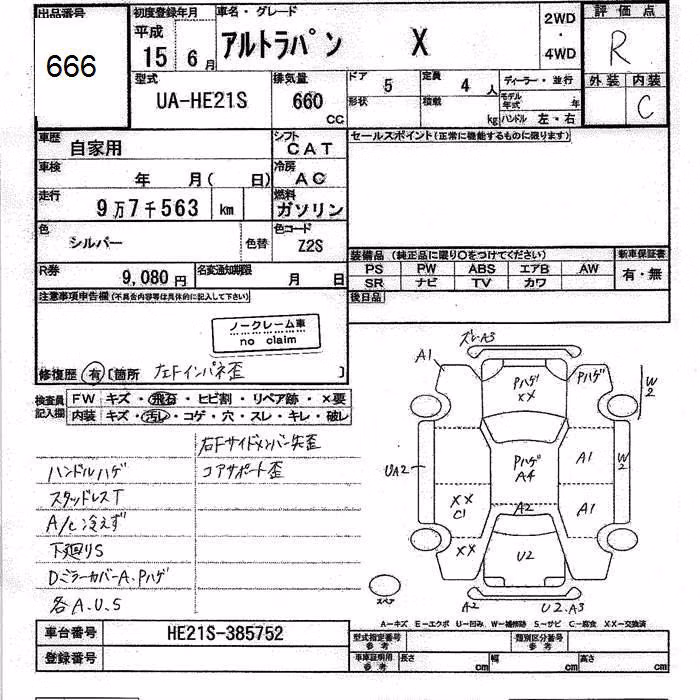 出品番号
666
初度登録年月
平成
15 年 6 月
車名・グレード
アルトラパン X
2WD
・
4WD
評価点
R
外装 内装
C
型式
UA-HE21S
排気量
660 CC
ドア 5
定員 4 人
形状
積載 kg
ディーラー・並行
モデル年式 年
ハンドル 左・右
車歴
自家用
シフト
CAT
セールスポイント(正常に機能するものに限ります)
車検
年 月( 日)
冷房
AC
走行
9万7千563 km
燃料
ガソリン
色
シルバー
色替
色コード
Z2S
装備品 (純正品に限り○をつけてください)
新車保証書
PS PW ABS エアB AW
有・無
SR ナビ TV カワ
R券
9,080 円
名変通知期限
月 日
後日品
注意事項申告欄(不具合内容等は具体的に記入して下さい)
ノークレーム車
no claim
修復歴 有 〔箇所 左Fインパネ歪 〕
検査員記入欄
FW キズ・飛石・ヒビ割・リペア跡・×要
内装 キズ・汚レ・コゲ・穴・スレ・キレ・破レ
右Fサイドメンバー先歪
ハンドルハゲ
コアサポート歪
スタッドレスT
A/C冷えず
下廻りS
DミラーカバーA、Pハゲ
各A.U.S
ズレ A3
A1
Pハゲ
XX
Pハゲ
W2
UA2
Pハゲ
A4
A1
W2
XX
C1
A2
A1
XX
U2
スペア
A2
U2.A3
A−キズ E−エクボ U−凹み W−補修跡 S−サビ C−腐食 XX−交換済
車台番号
HE21S-385752
登録番号
型式指定番号
参考
類別区分番号
参考
車庫証明用
参考
長さ cm
幅 cm
高さ cm